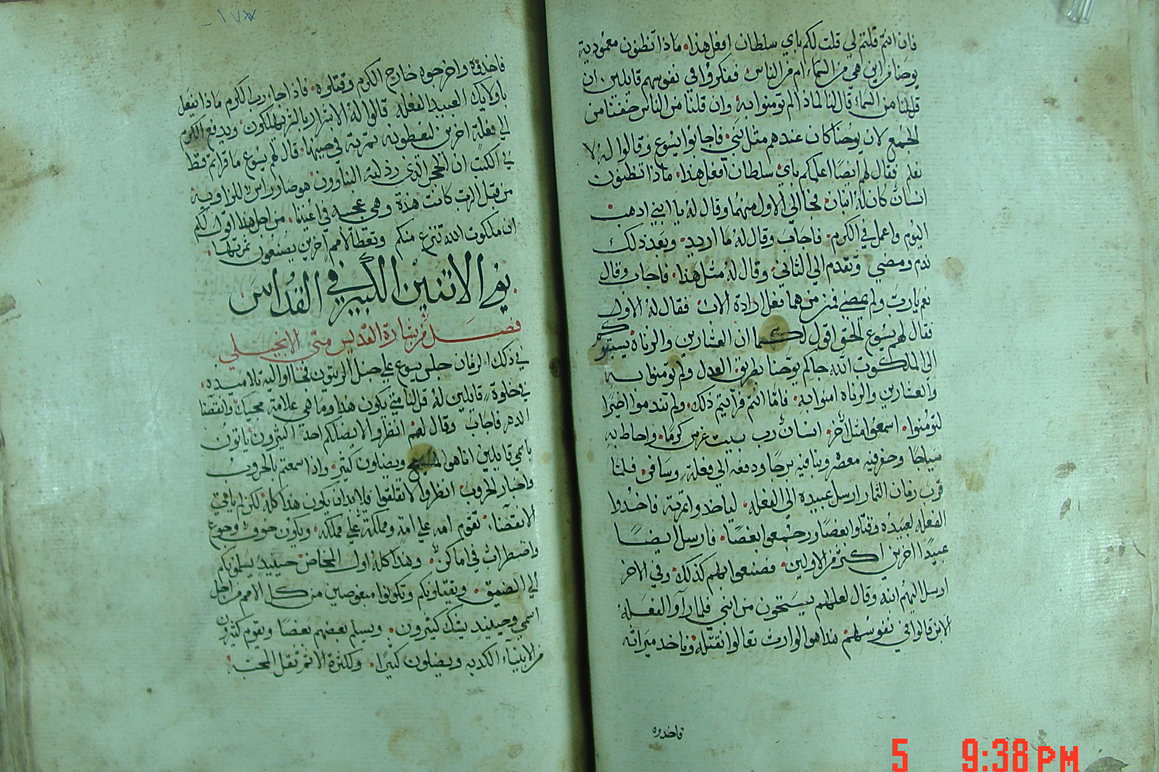 فان انتم قلتم لي قلت لكم باي سلطان افعل هذا. ماذا تظنون معمودية
يوحنا من اين هي من السماء ام من الناس. ففكروا في نفوسهم قايلين ان
قلنا من السماء قال لنا لماذا لم تومنوا به. وان قلنا من الناس خفنا من
الجمع لان يوحنا كان عندهم مثل نبي. فاجابوا ليسوع وقالوا له لا
نعلم فقال لهم ولا انا ايضا اعلمكم باي سلطان افعل هذا. ماذا تظنون
انسان كان له ابنان. فجا الي الاول منهما وقال له يا ابني اذهب
اليوم واعمل في الكرم. فاجاب وقال له ما اريد. وبعد ذلك
ندم ومضي. وتقدم الي الثاني. وقال له مثل هذا. فاجاب وقال
نعم يارب ولم يمضي فمن منهما فعل ارادة الاب. فقال له الاول
فقال لهم يسوع الحق اقول لكم ان العشارين والزناه يسبقوكم
الي ملكوت الله جاكم يوحنا بطريق العدل ولم تومنوا به
والعشارين والزناه امنوا به. فاما انتم فرايتم ذلك. ولم تندموا اخيرا
لتومنوا. اسمعوا مثل اخر. انسان رب بيت غرس كرما. واحاط به
سياجا وحفر فيه معصره وبنا فيه برجا ودفعه الي فعلة. وسافر. فلما
قرب زمان الثمار ارسل عبيده الي الفعله. لياخذوا ثمرته. فاخذوا
الفعله لعبيده وقتلوا بعضا ورجموا بعضا. فارسل ايضا
عبيدا اخرين اكثر من الاولين. فصنعوا بهم كذلك. وفي الاخر
ارسل اليهم ابنه وقال لعلهم يستحون من ابني فلما راوا الفعله
الابن قالوا في نفوسهم هذا هو الوارث تعالوا نقتله وناخذ ميراثه
فاخذوه
١٧٧
فاخذوه واخرجوه خارج الكرم وقتلوه. فاذا جا رب الكرم ماذا يفعل
باوليك العبيد الفعله. قالوا له الاشرار بالشر يهلكون. ويدفع الكرم
الي فعلة اخرين ليعطوه ثمرته في حينها. قال لهم يسوع ما قراتم قط
في الكتب ان الحجر الذي رذله البناوون هو صار راس للزاويه
من قبل الرب كانت هذه وهي عجيبه في اعيننا. من اجل هذا اقول لكم
ان ملكوت الله تنزع منكم وتعطا لامم اخرين يصنعون ثمرتها.
يوم الاثنين الكبير في القداس
فصل من بشارة القديس متي الانجيلي
في ذلك الزمان جلس يسوع علي جبل الزيتون فجاوا اليه تلاميذه
في خلوة. قايلين له قل لنا متي يكون هذا وما هي علامة مجيك وانقضا
الدهر فاجاب وقال لهم انظروا لا يضلكم احد. كثيرون ياتون
باسمي قايلين انا هو المسيح ويضلون كثير. واذا سمعتم بالحروب
واخبار الحروب. انظروا لا تقلقوا. فلابد ان يكون هذا كله لكن لم ياتي
الانقضا. تقوم امه علي امه ومملكة علي مملكه. ويكون خوف وجوع
واضطراب في اماكن. وهذا كله اول المخاض حينيذ يسلمونكم
الي الضيق. ويقتلونكم وتكونوا مبغوضين من كل الامم من اجل
اسمي وحينيذ يشك كثيرون. ويسلم بعضهم بعضا ويقوم كثيرون
من الانبياء الكذبه ويضلون كثيرا. ولكثرة الاثم تقل المحبة
5 9:38 PM